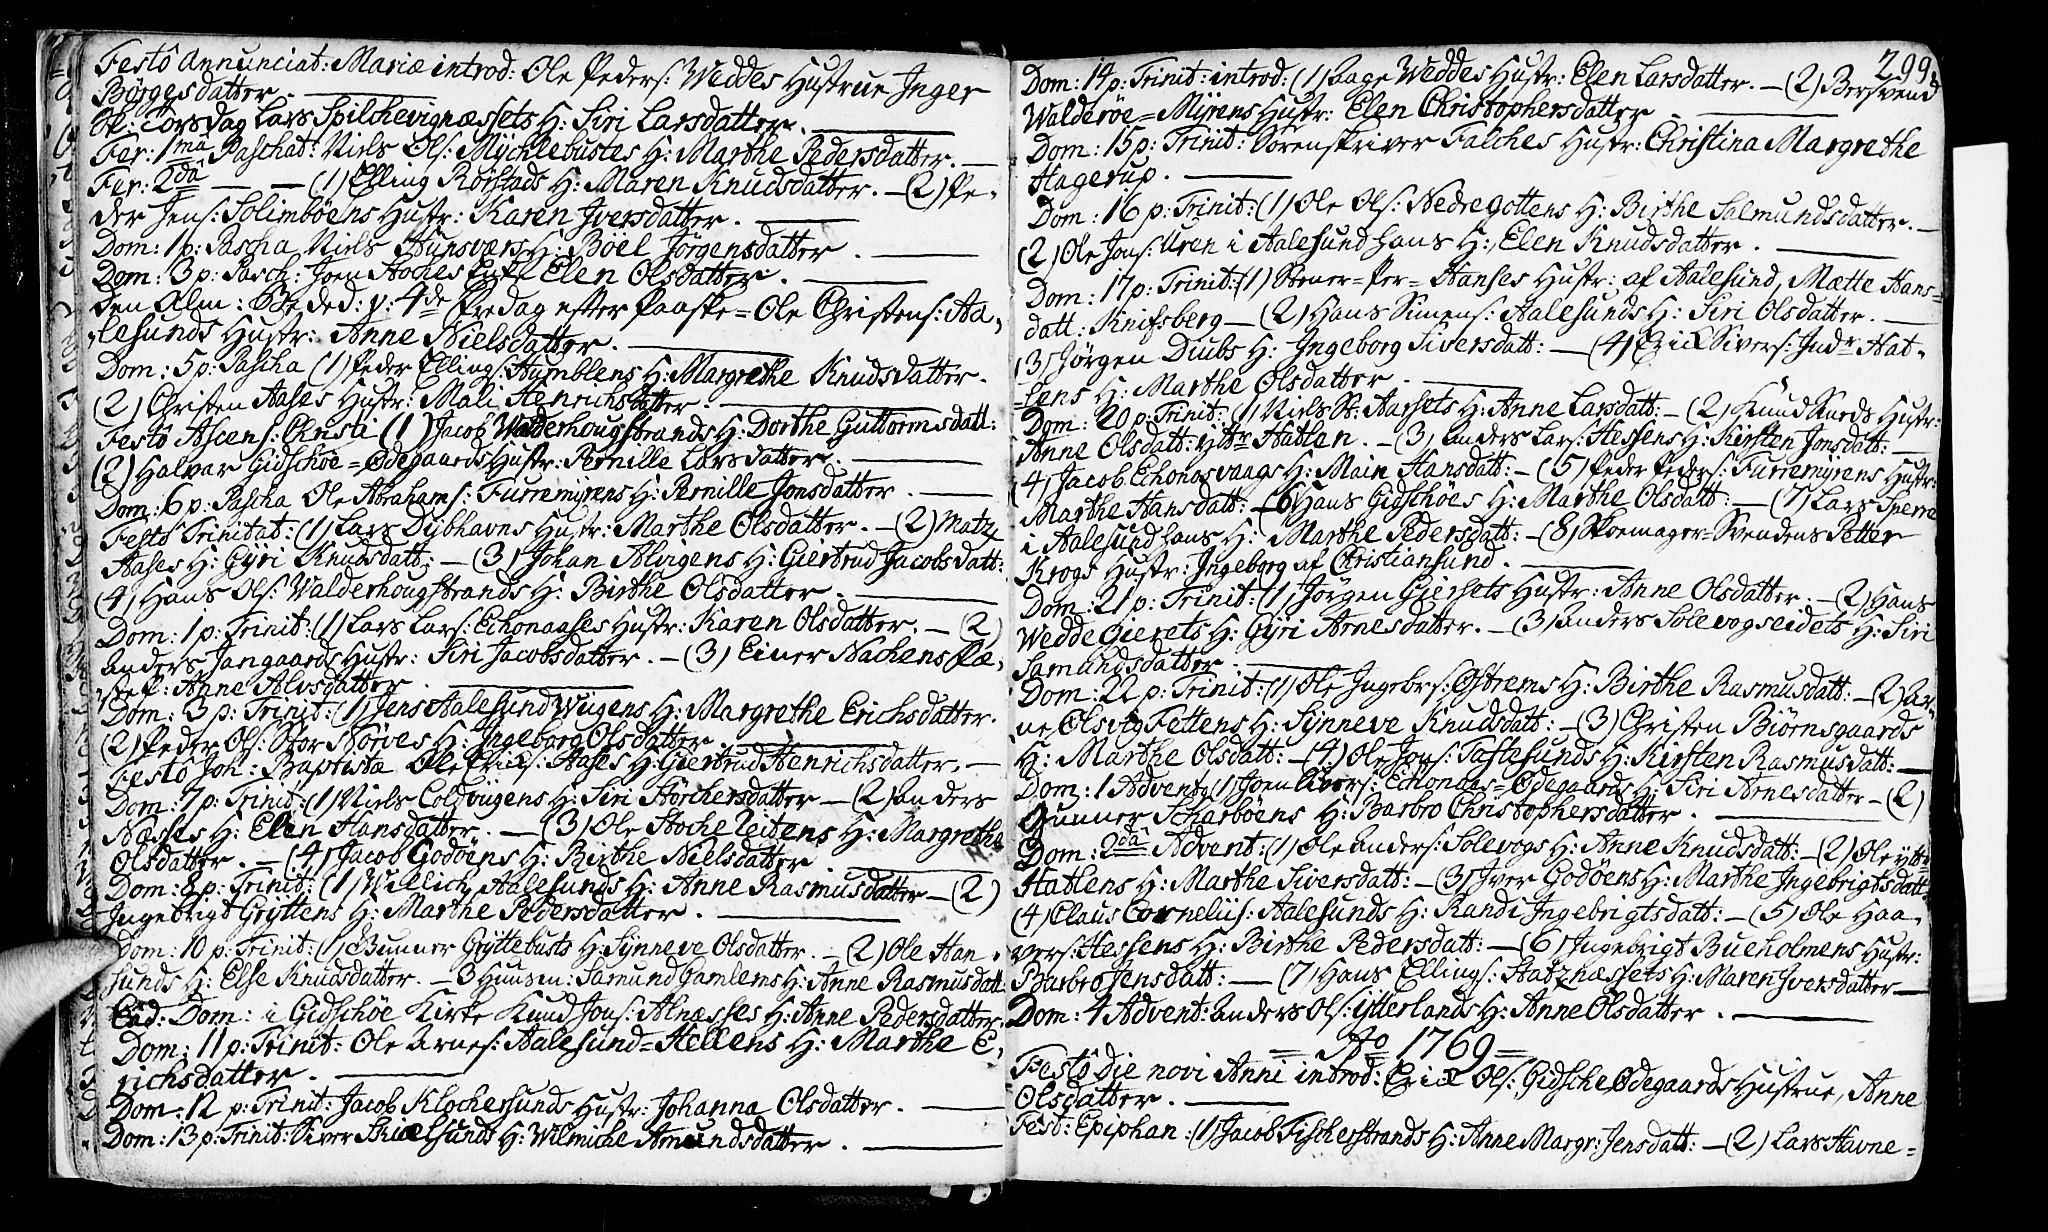 Festo Annunciat: Mariæ introd: Ole Peders: Weddes Hustrue Inger
Börgesdatter.
Sk: Torsdag Lars Spilchevignæssets H: Siri Larsdatter.
Fer: 1ma Paschat: Niels Ols: Mÿchlebustes H: Marthe Pedersdatter.
Fer: 2dâ — — (1) Elling Rörstads H: Maren Knudsdatter. — (2) Pe-
der Jens: Solimböens Hustr: Karen Iversdatter.
Dom: 1 p: Pascha Niels Hunsværs H: Böel Jörgensdatter
Dom: 3 p: Pasch: Joen Hoches Enke Elen Olsdatter.
Den Alm: Bededag: 4de Fredag efter Paaske = Ole Christens: Aa-
lesunds Hustr: Anne Nielsdatter.
Dom: 5 p: Pascha (1) Peder Ellings: Humblens H: Margrethe Knudsdatter.
(2) Christen Aases Hustr: Mali Henrichsdatter.
Festo Ascens: Christi (1) Jacob Walderhougstrands H: Dorthe Guttormsdatt:
(2) Halvar Gidschöe = Ødegaards Hustr: Pernille Larsdatter.
Dom: 6 p: Pascha Ole Abrahams: Furremÿrens H: Pernille Jonsdatter.
Festo Trinitat: (1) Lars Dÿbhavns Hustr: Marthe Olsdatter. — (2) Matz
Aases H: Gÿri Knudsdatt: — (3) Johan Alvgens H: Giertrud Jacobsdatt:
(4) Hans Ols: Walderhougstrands H: Birthe Olsdatter.
Dom: 1 p: Trinit: (1) Lars Lars: Echonaases Hustr: Karen Olsdatter. — (2)
Anders Jangaards Hustr: Siri Jacobsdatter. — (3) Einer Nachens Fæ-
stef: Anne Alvsdatter.
Dom: 3 p: Trinit: (1) Jens Aalesund Wiigens H: Margrethe Erichsdatter.
(2) Peder Ols: Stor Nörves H: Ingeborg Olsdatter.
Festo Joh: Baptistæ Ole Erics: Aases H: Giertrud Henrichsdatter.
Dom: 7 p: Trinit: (1) Niels Coldvigens H: Siri Störchersdatter — (2) Anders
Næsses H: Elen Hansdatter. — (3) Ole Hocheleitens H: Margrethe
Olsdatter. — (4) Jacob Godöens H: Birthe Nielsdatter
Dom: 8 p: Trinit: (1) Willich Aalesunds H: Anne Rasmusdatter — (2)
Ingebrigt Grÿttens H: Marthe Pedersdatter.
Dom: 10 p: Trinit: (1) Gunner Grÿttebusts H: Sÿnneve Olsdatter. — (2) Ole Han-
sunds H: Else Knudsdatter. — 3 Huusm: Samund Gamlems H: Anne Rasmusdatt.
Ead: Dom: i Gidschöe Kirke Knud Jons: Alnæsses H: Anne Pedersdatter.
Dom: 11 p: Trinit: Ole Arnes: Aalesund = Hellens H: Marthe E-
richsdatter.
Dom: 12 p: Trinit: Jacob Klochersunds Hustr: Johanna Olsdatter.
Dom: 13 p: Trinit: Siver Skuelsunds H: Wilmiche Amundsdatter.
299.
Dom: 14 p: Trinit: introd: (1) Aage Weddes Hustr: Elen Larsdatter. — (2) Bersvend
Walderöe = Mÿrens Hustr: Elen Christophersdatter
Dom: 15 p: Trinit: Sorenskriver Falches Hustr: Christina Margrethe
Hagerup.
Dom: 16 p: Trinit: (1) Ole Ols: Nedregottens H: Birthe Salmundsdatter.
(2) Ole Jons: Uren i Aalesund hans H: Elen Knudsdatter.
Dom: 17 p: Trinit: (1) Stener = Per = Hanses Hustr: af Aalesund, Mætte Hans=
datt: Knifsberg — (2) Hans Simens: Aalesunds H: Siri Olsdatter.
(3) Jörgen Diubs H: Ingeborg Siversdatt: — (4) Erick Sivers: Indr Hat-
lens H: Marthe Olsdatter.
Dom: 20 p: Trinit: (1) Niels St: Aarsets H: Anne Larsdatt: — (2) Knud Kards Hustr:
Anne Olsdatt: Yttr Hatlen. — (3) Anders Lars: Hessens H: Kirsten Jonsdatt:
(4) Jacob Echonosvaags H: Main Hansdatt: — (5) Peder Peders: Furremÿrens Hustr:
Marthe Hansdatt: — (6) Hans Gidschöes H: Marthe Olsdatt: — (7) Lars Sperre
i Aalesund hans H: Marthe Pedersdatt: — (8) Skoemager = Svendens Petter
Krogs Hustr: Ingeborg af Christiansund.
Dom: 21 p: Trinit: (1) Jörgen Giersets Hustr: Anne Olsdatter. — (2) Hans
Wedde Gierets H: Gÿri Arnesdatter. — (3) Anders Solevogseidets H: Siri
Samundsdatter.
Dom: 22 p: Trinit: (1) Ole Ingebrs: Østrems H: Birthe Rasmusdatt: — (2) Ar-
ne Olsvig Fettens H: Sÿnneve Knudsdatt: — (3) Christen Biörnsgaards
H: Marthe Olsdatt: — (4) Ole Jons: Tastesunds H: Kirsten Rasmusdatt:
Dom: 1 Advent: (1) Joen Ivers: Echonoes = Ødegaards H: Siri Arnesdatter — (2)
Gunner Scharböens H: Barbro Christophersdatter.
Dom: 2dâ Advent: (1) Ole Anders: Solevogs H: Anne Knudsdatt: — (2) Ole Ytt:
Hatlens H: Marthe Siversdatt: — (3) Iver Godöens H: Marthe Ingebrigtsdatt
(4) Claus Cornelius: Aalesunds H: Randi Ingebrigtsdatt: — (5) Ole Haa-
vers: Hessens H: Birthe Pedersdatt: — (6) Ingebrigt Bueholmens Hustr:
Barbro Jensdatt: — (7) Hans Ellings: Hatznæssets H: Maren Iversdatter
Dom: 4 Advent: Anders Ols: Ytterlands H: Anne Olsdatter.
= Ao 1769 =
Festo Die novi Anni introd: Erick Ols: Gidsche Ødegaards Hustrue, Anne
Olsdatter.
Fest: Epiphan: (1) Jacob Fischerstrands H: Anne Margr: Jensdatt: — (2) Lars Havne=